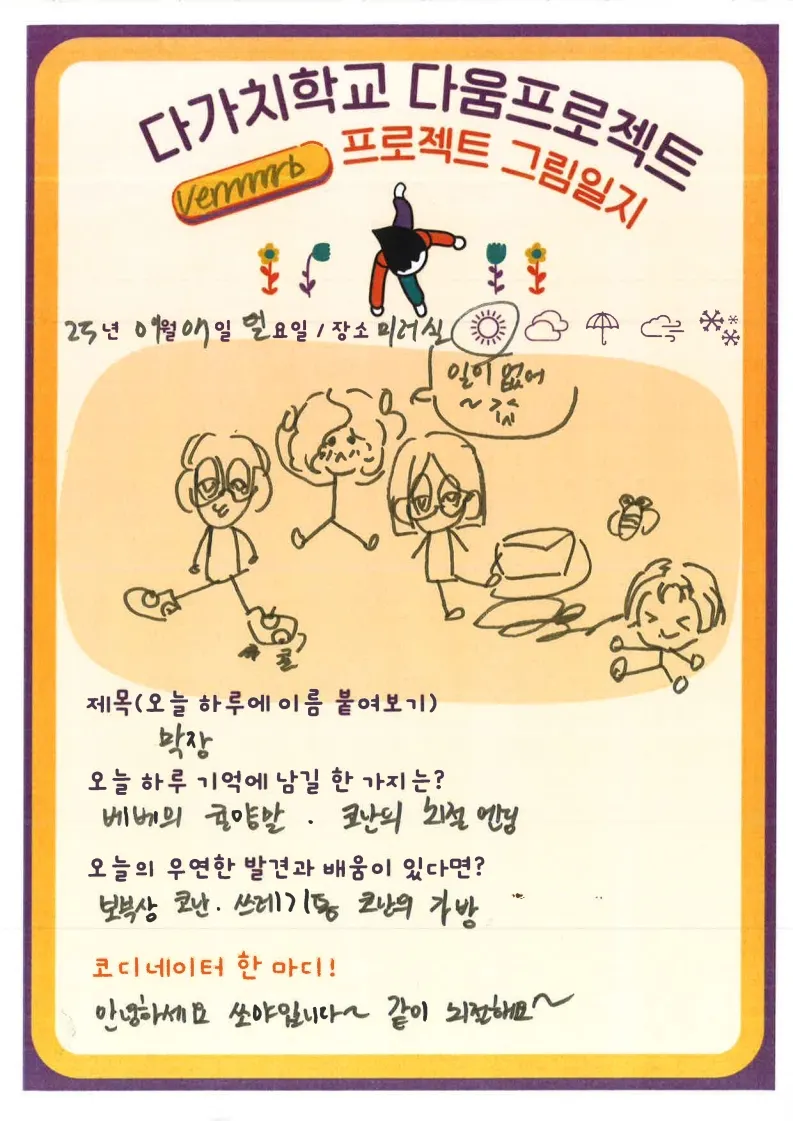 다가치학교 다움프로젝트
프로젝트 그림일지
vermrrrb
25년 09월 09일 월요일 / 장소 미러실
일이 없어
~ 굽
귤
제목(오늘 하루에 이름 붙여보기)
막장
오늘 하루 기억에 남길 한 가지는?
베베의 귤양말 . 코난의 뇌절 엔딩
오늘의 우연한 발견과 배움이 있다면?
보부상 코난. 쓰레기통 코난의 가방
코디네이터 한 마디!
안녕하세요 쏘야입니다~ 같이 뇌절해요~